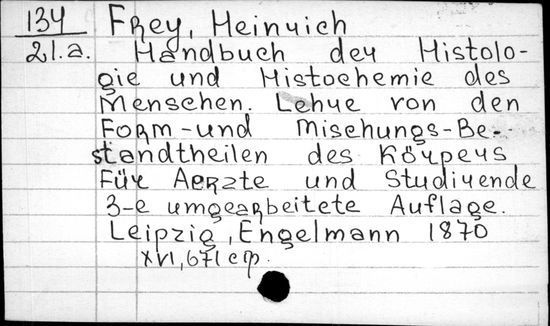 134 Frey, Heinrich
21.a. Handbuch der Histolo-
gie und Histochemie des
Menschen. Lehre von den
Form-und Mischungs-Be-
standtheilen des Körpers
Für Aerzte und Studirende
3-e umgearbeitete Auflage.
Leipzig, Engelmann 1870
XVI, 671 стр.